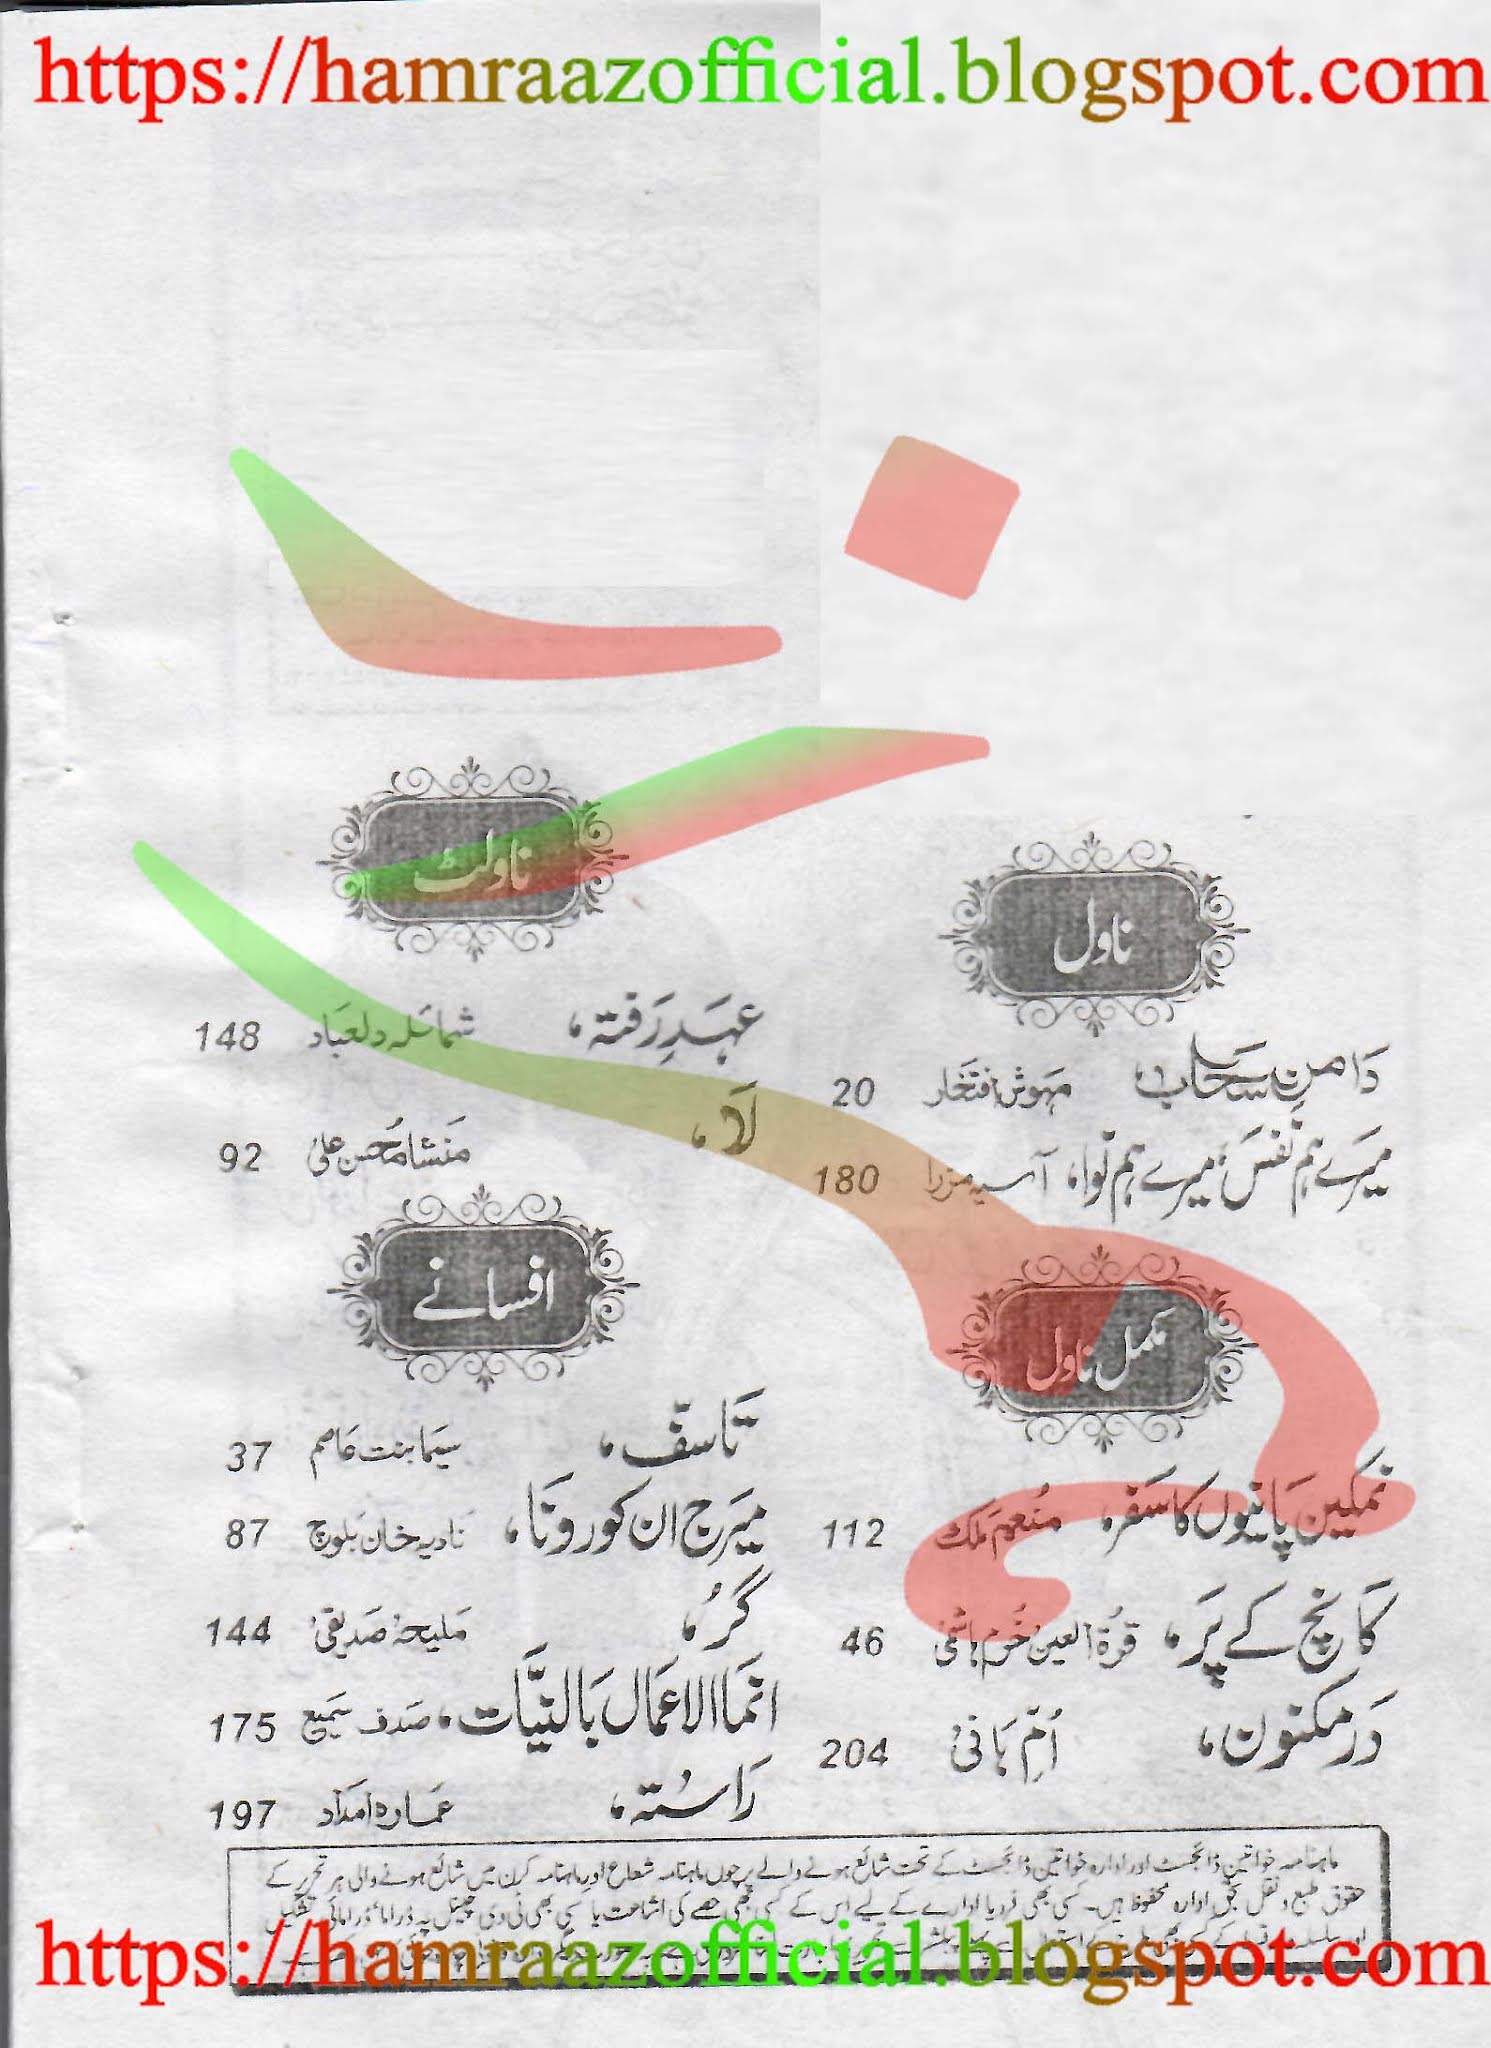 https://hamraazofficial.blogspot.com
ناول
دامنِ سحاب، مہوش افتخار 20
میرے ہم نفس، میرے ہم نوا، آسیہ مرزا 180
مکمل ناول
نمکین پانیوں کا سفر، منعم ملک 112
کانچ کے پَر، قرۃ العین خرم ہاشمی 46
در مکنون، اُمِّ ہانی 204
ناولٹ
عہدِ رفتہ، شمائلہ دلعباد 148
لَا، منشا محسن علی 92
افسانے
تاسف، سیما بنت عاصم 37
میرج ان کورونا، نادیہ خان بلوچ 87
گُر، ملیحہ صدیقی 144
انما الاعمال بالنیات، صدف سمیع 175
راستہ، عمارہ امداد 197
ماہنامہ خواتین ڈائجسٹ اور ادارہ خواتین ڈائجسٹ کے تحت شائع ہونے والے پرچوں ماہنامہ شعاع اور ماہنامہ کرن میں شائع ہونے والی ہر تحریر کے
حقوق طبع و نقل بحق ادارہ محفوظ ہیں۔ کسی بھی فرد یا ادارے کے لیے اس کے کسی بھی حصے کی اشاعت یا کسی بھی ٹی وی چینل پہ ڈراما، ڈرامائی تشکیل
https://hamraazofficial.blogspot.com